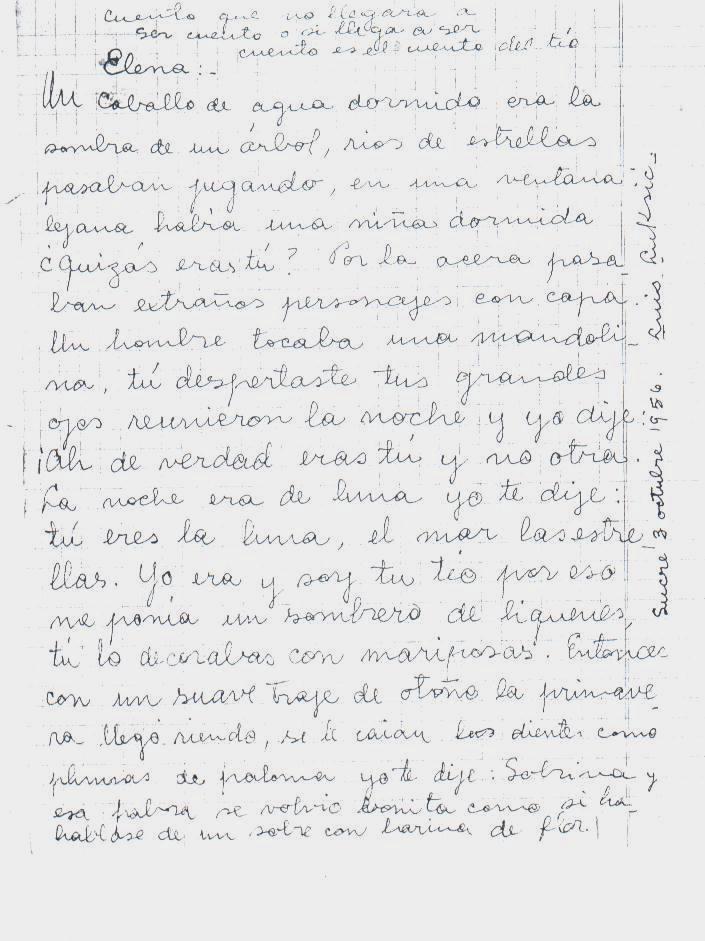 cuento que no llegara a
ser cuento o si llega a ser
cuento es el cuento del tío
Elena:-
Un Caballo de agua dormido era la
sombra de un árbol, rios de estrellas
pasaban jugando, en una ventana
lejana había una niña dormida
¿Quizás eras tú? Por la acera pasa-
ban extraños personajes con capa.
Un hombre tocaba una mandoli-
na, tú despertaste tus grandes
ojos reunieron la noche y yo dije:
¡Ah de verdad eras tú y no otra.
La noche era de luna yo te dije:
tú eres la luna, el mar las estre
llas. Yo era y soy tu tío por eso
me ponía un sombrero de liquenes,
tú lo decorabas con mariposas. Entonces
con un suave traje de otoño la primave-
ra llegó riendo, se le caian los dientes como
plumas de paloma yo te dije: Sobrina y
esa palabra se volvio bonita como si ha-
hablase de un sobre con harina de flor.
Sucre 3 octubre 1956. Luis Luksic=